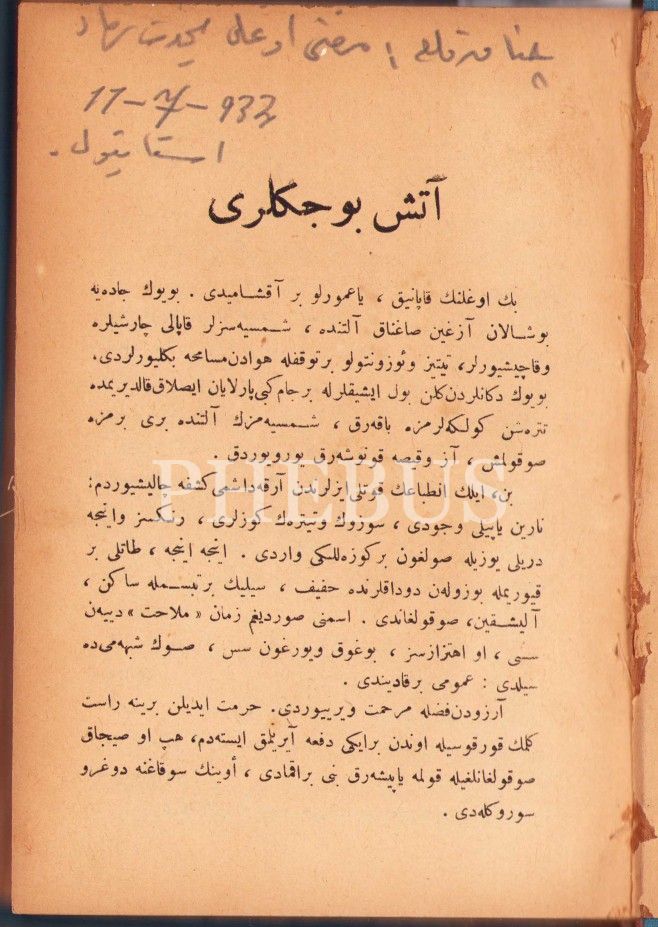 11-7-933
استانبول.
آتش بوجكلرى
بك اوغلنك قاپانيق ، ياغمورلو بر آقشاميدى . بويوك جاده‌يه
بوشالان آزغين صاغناق آلتنده ، شمسيه‌سزلر قاپالى چارشيلره
وقاچيشيورلر، تيتيز وئوزونتولو برتوقفله هوادن مسامحه بكليورلردى.
بويوك دكانلردن كلن بول ايشيقلرله برجام كبى پارلايان ايصلاق قالديريمده
تتره‌شن كولكه‌لرمزه باقه‌رق ، شمسيه‌مزك آلتنده برى برمزه
صوقولمش ، آز وقيصه قونوشه‌رق يورويوردق .
PHEBUS
بن، ايلك انطباعك قوتلى ايزلرندن آرقه‌داشمى كشفه چاليشيوردم:
نارين ياپيلى وجودى ، سوزوك وتيتره‌ك كوزلرى ، رنكسز واينجه
دريلى يوزيله صولغون بركوزه‌للكى واردى . اينجه اينجه ، طاتلى بر
قيوريمله بوزوله‌ن دوداقلرنده خفيف ، سيليك برتبسمله ساكن ،
آليشقين، صوقولغاندى . اسمنى صورديغم زمان «ملاحت» دييه‌ن
سسى ، او اهتزازسز ، بوغوق ويورغون سس ، صوك شبهه‌مى ده
سيلدى : عمومى برقاديندى .
آرزودن فضله مرحمت ويرييوردى. حرمت ايديلن برينه راست
كلمك قورقوسيله اوندن برايكى دفعه آيريلمق ايسته‌دم، هپ او صيجاق
صوقولغانلغيله قولمه ياپيشه‌رق بنى براقمادى ، أوينك سوقاغنه دوغرو
سوروكله‌دى .